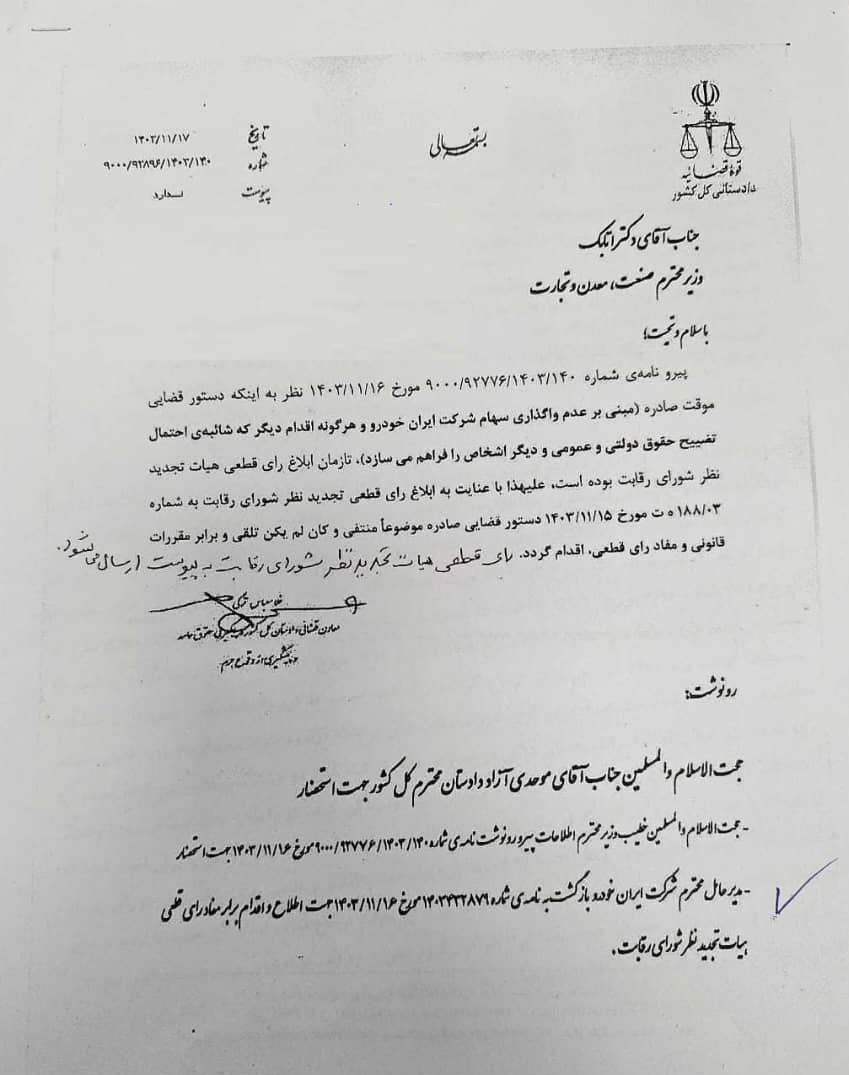 بسمه تعالی
قوه قضائیه
دادستانی کل کشور
تاریخ ۱۴۰۳/۱۱/۱۷
شماره ۹۰۰۰/۹۲۸۹۶/۱۴۰۳/۱۴۰
پیوست ندارد
جناب آقای دکتر اتابک
وزیر محترم صنعت، معدن و تجارت
با سلام و تحیت؛
پیرو نامه‌ی شماره ۹۰۰۰/۹۲۷۷۶/۱۴۰۳/۱۴۰ مورخ ۱۴۰۳/۱۱/۱۶ نظر به اینکه دستور قضایی
موقت صادره (مبنی بر عدم واگذاری سهام شرکت ایران خودرو و هرگونه اقدام دیگر که شائبه‌ی احتمال
تضییح حقوق دولتی و عمومی و دیگر اشخاص را فراهم می سازد)، تازمان ابلاغ رای قطعی هیات تجدید
نظر شورای رقابت بوده است، علیهذا با عنایت به ابلاغ رای قطعی تجدید نظر شورای رقابت به شماره
۱۸۸/۰۳ ه ت مورخ ۱۴۰۳/۱۱/۱۵ دستور قضایی صادره موضوعاً منتفی و کان لم یکن تلقی و برابر مقررات
قانونی و مفاد رای قطعی، اقدام گردد. رای قطعی هیات تجدید نظر شورای رقابت به پیوست ارسال می‌شود.
غلامعباس ترکی
معاون قضائی دادستان کل کشور در پیگیری حقوق عامه
و پیشگیری از وقوع جرم
رونوشت:
حجت الاسلام والمسلمین جناب آقای موحدی آزاد دادستان محترم کل کشور جهت استحضار
- حجت الاسلام والمسلمین خطیب وزیر محترم اطلاعات پیرو رونوشت نامه‌ی شماره ۹۰۰۰/۹۲۷۷۶/۱۴۰۳/۱۴۰ مورخ ۱۴۰۳/۱۱/۱۶ جهت استحضار
- مدیرعامل محترم شرکت ایران خودرو بازگشت به نامه‌ی شماره ۱۴۰۳۴۳۲۸۷۹ مورخ ۱۴۰۳/۱۱/۱۶ جهت اطلاع و اقدام برابر مفاد رای قطعی
هیات تجدید نظر شورای رقابت.